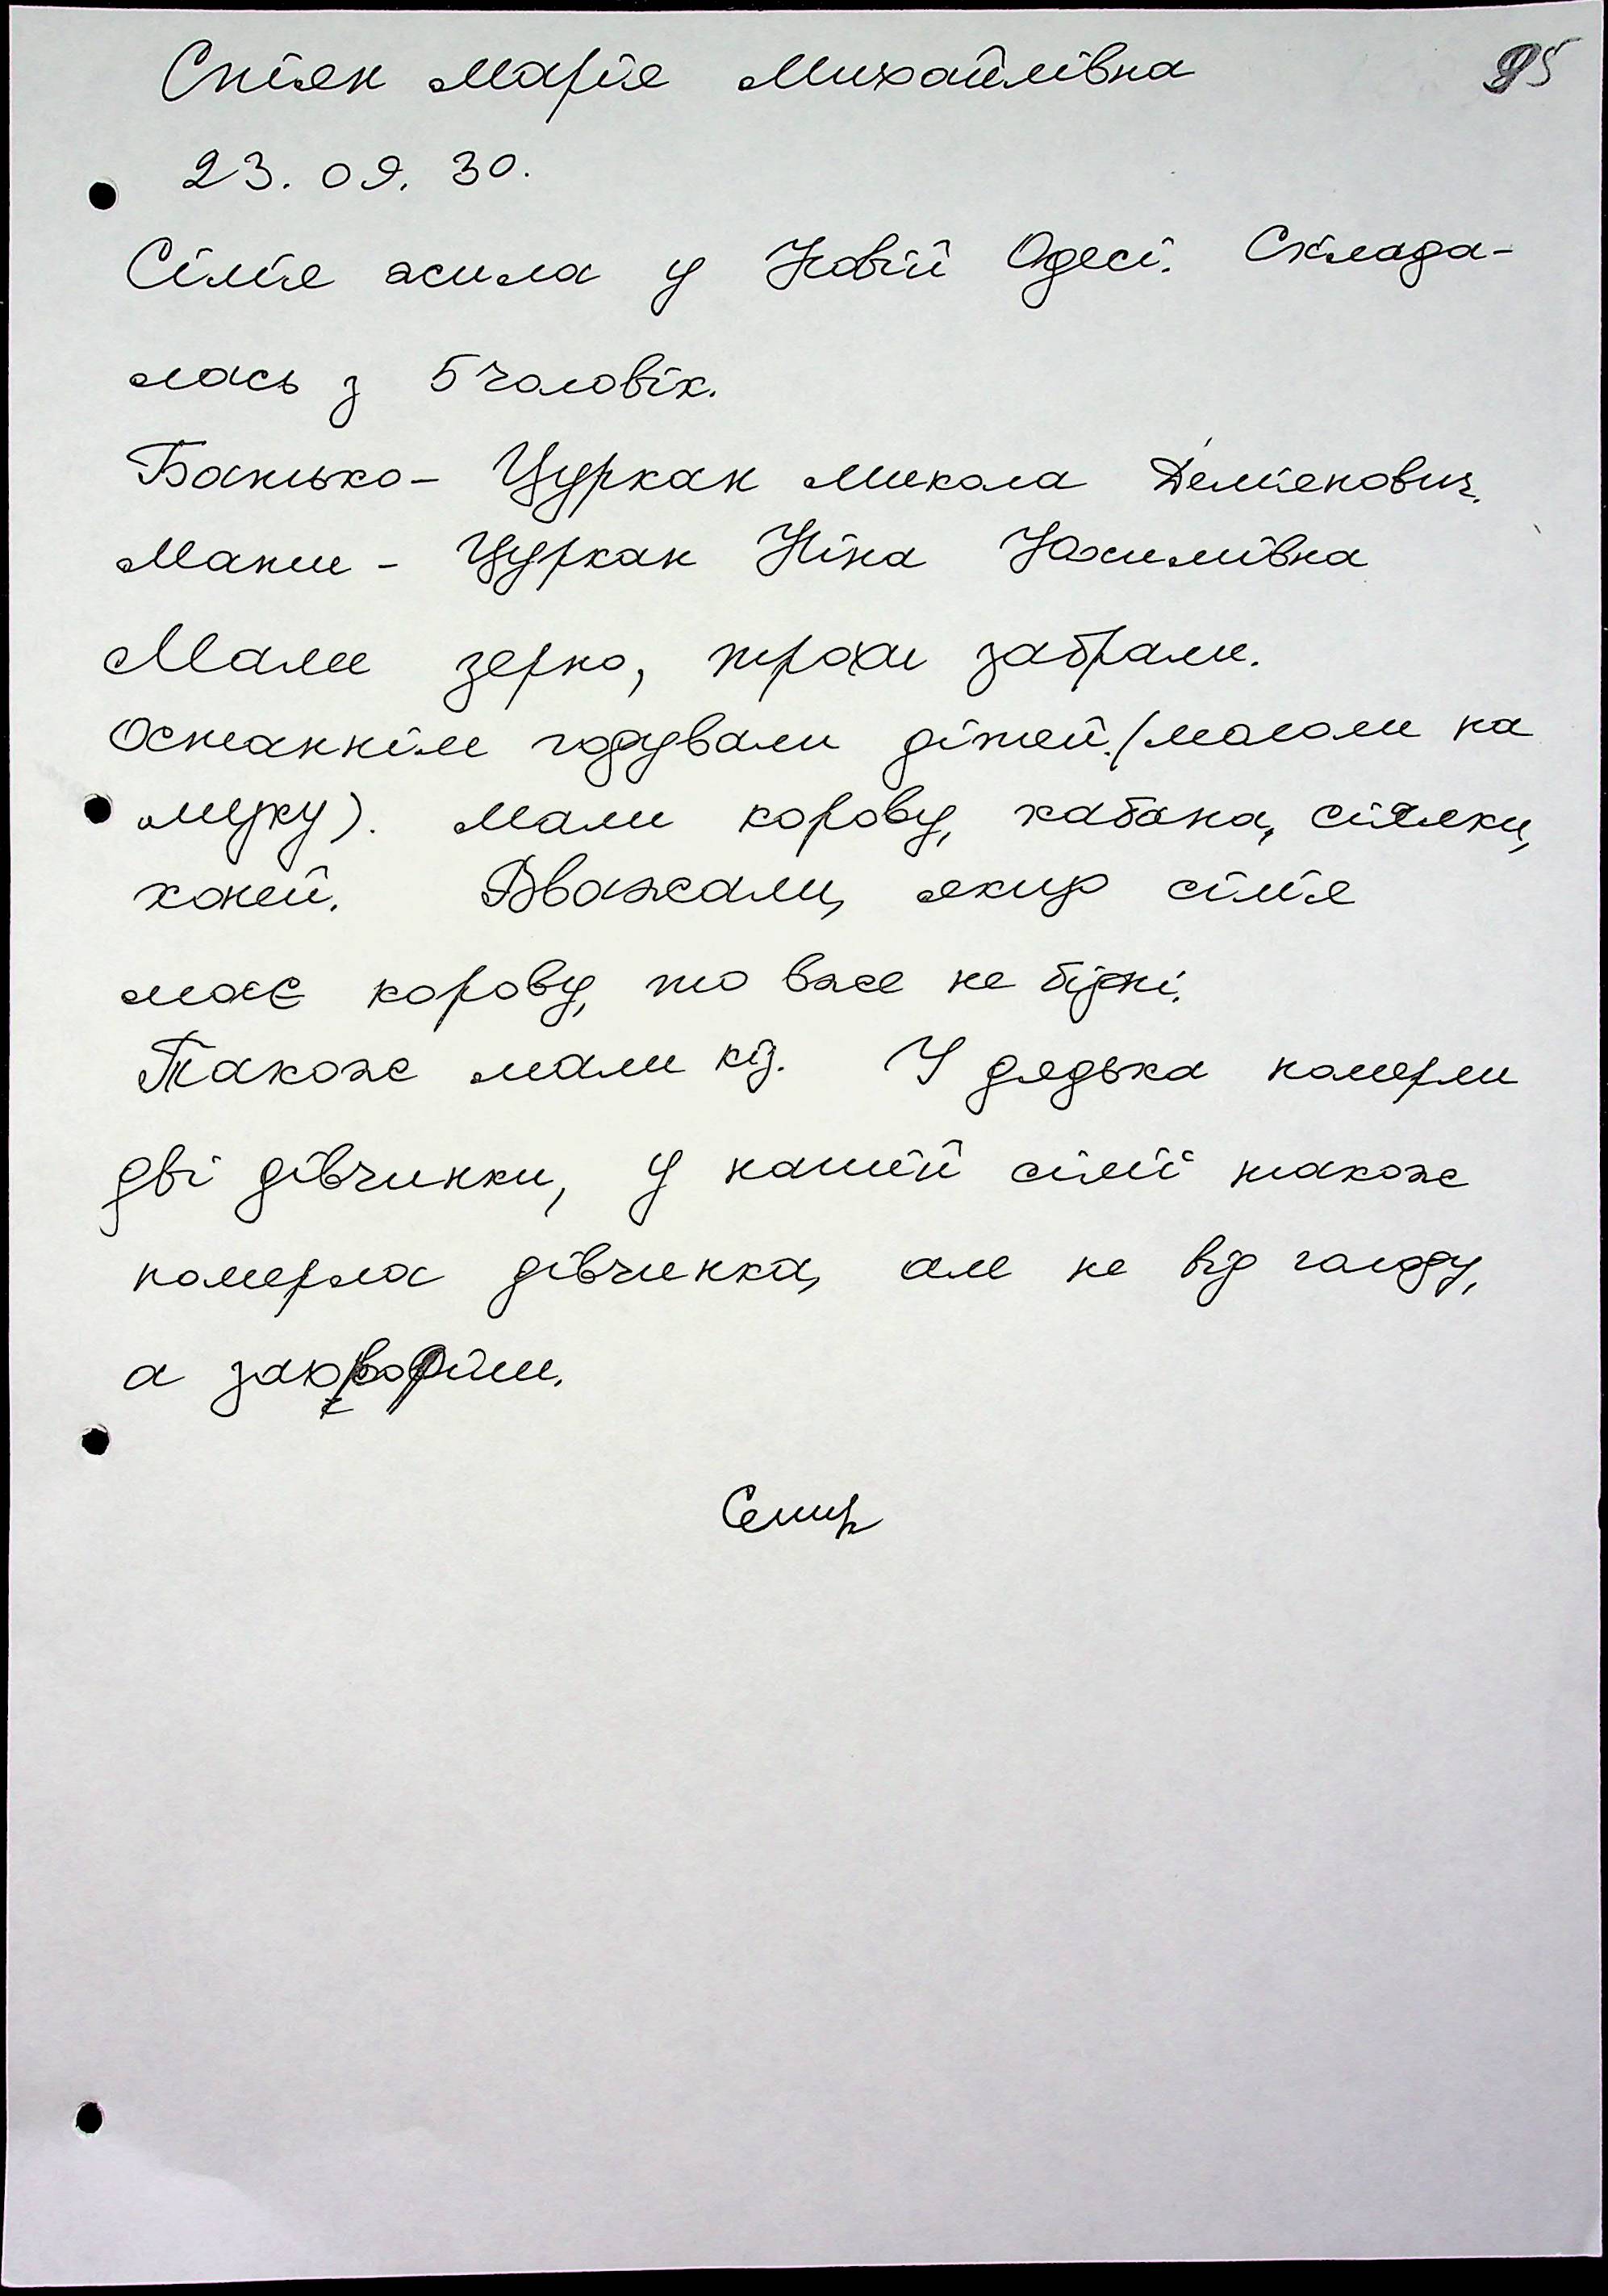 Стіян Марія Михайлівна 95
23. 09. 30.
Сімія жила у Новій Одесі. Склада-
лась з 5 чоловік.
Батько - Цуркан Микола Дем'янович.
Мати - Цуркан Ніна Юхимівна
Мали зерно, трохи забрали.
Останнім годували дітей. (мололи на
муку). Мали корову, кабана, сіялки,
коней. Вважали, якщо сімія
має корову, то вже не бідні.
Також мали кіз. У дядька померли
дві дівчинки, у нашій сімії також
померла дівчинка, але не від голоду,
а